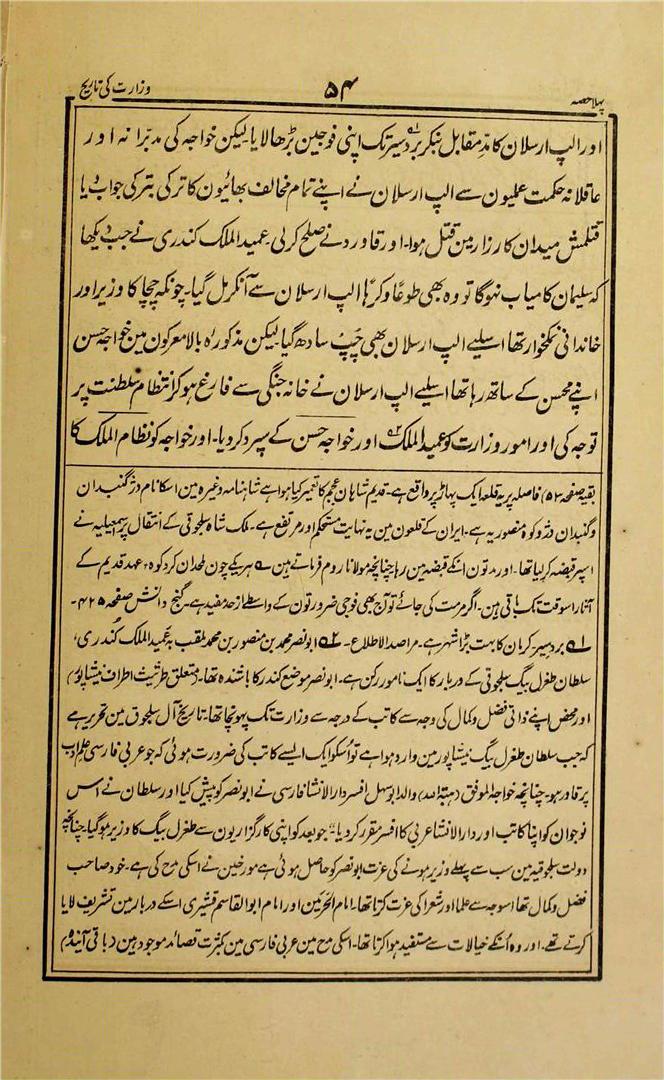 پہلا حصہ ۵۴ وزارت کی تاریخ
اور الپ ارسلان کا مدِّ مقابل بنکر بردسیر۱؎ تک اپنی فوجین بڑھا لایا۔ لیکن خواجہ کی مدبّرانہ اور
عاقلانہ حکمت عملیون سے الپ ارسلان نے اپنے تمام مخالف بھائیون کا ترکی بترکی جواب دیا
قتلمش میدان کارزار مین قتل ہوا۔ اور قاورد نے صلح کرلی۔ عمید الملک کندری نے جب دیکھا
کہ سلیمان کامیاب نہوگا تو وہ بھی طوعًا وکرہًا الپ ارسلان سے آنکر مل گیا۔ چونکہ چچا کا وزیر اور
خاندانی نمکخوار تھا اسلیے الپ ارسلان بھی چُپ سادھ گیا۔ لیکن مذکورہ بالا معرکون مین خواجہ حسن
اپنے محسن کے ساتھ رہا تھا اسلیے الپ ارسلان نے خانہ جنگی سے فارغ ہوکر انتظام سلطنت پر
توجہ کی اور امور وزارت کو عمید الملک۲؎ اور خواجہ حسن کے سپرد کردیا۔ اور خواجہ کو نظام الملک کا
بقیہ صفحہ ۵۳) فاصلہ پر یہ قلعہ ایک پہاڑ پر واقع ہے۔ قدیم شاہان عجم کا تعمیر کیا ہوا ہے شاہنامہ وغیرہ مین اسکا نام دژ گنبدان
و گنبدان دژ و کوہ منصوریہ ہے۔ ایران کے قلعون مین یہ نہایت مستحکم اور مرتفع ہے۔ ملک شاہ سلجوقی کے انتقال پر سمعیلیہ نے
اسپر قبضہ کرلیا تھا۔ اور مدتون انکے قبضہ مین رہا چنانچہ مولانا روم فرماتے ہین ؎ ہر یکے چون ملحدان کرد کوہ، عہد قدیم کے
آثار اسوقت تک باقی ہین۔ اگر مرمت کی جائے تو آج بھی فوجی ضرورتون کے واسطے ازحد مفید ہے۔ گنج دانش صفحہ ۴۲۵۔
۱؎ بردسیر کرمان کا بہت بڑا شہر ہے۔ مراصد الاطلاع۔ ۲؎ ابونصر محمد بن منصور بن محمد ملقب بہ عمید الملک کُندری،
سلطان طغرل بیگ سلجوقی کے دربار کا ایک نامور رکن ہے۔ ابونصر موضع کندر کا باشندہ تھا۔ (متعلق طرثیث اطراف نیشاپور)
اور محض اپنے ذاتی فضل و کمال کی وجہ سے کاتب کے درجہ سے وزارت تک پہونچا تھا۔ تاریخ آل سلجوق مین تحریر ہے
کہ جب سلطان طغرل بیگ نیشاپور مین وارد ہوا ہے تو اسکو ایک ایسے کاتب کی ضرورت ہوئی کہ جو عربی فارسی علم ادب
پر قادر ہو۔ چنانچہ خواجہ الموفق (ہبۃ اللہ) والد ابوسہل افسر دار الانشا فارسی نے ابونصر کو پیش کیا اور سلطان نے اس
نوجوان کو اپنا کاتب اور دار الانشا عربی کا افسر مقرر کردیا۔" جو بعد کو اپنی کارگزاریون سے طغرل بیگ کا وزیر ہوگیا۔ چنانچہ
دولت سلجوقیہ مین سب سے پہلے وزیر ہونے کی عزت ابونصر کو حاصل ہوئی ہے مورخین نے اسکی مدح کی ہے۔ خود صاحب
فضل و کمال تھا اسوجہ سے علما اور شعرا کی عزت کرتا تھا۔ امام الحرمین اور امام ابو القاسم قشیری اسکے دربار مین تشریف لایا
کرتے تھے۔ اور وہ اُنکے خیالات سے مستفید ہوا کرتا تھا۔ اسکی مدح مین عربی فارسی مین بکثرت قصائد موجود ہین (باقی آیندہ)